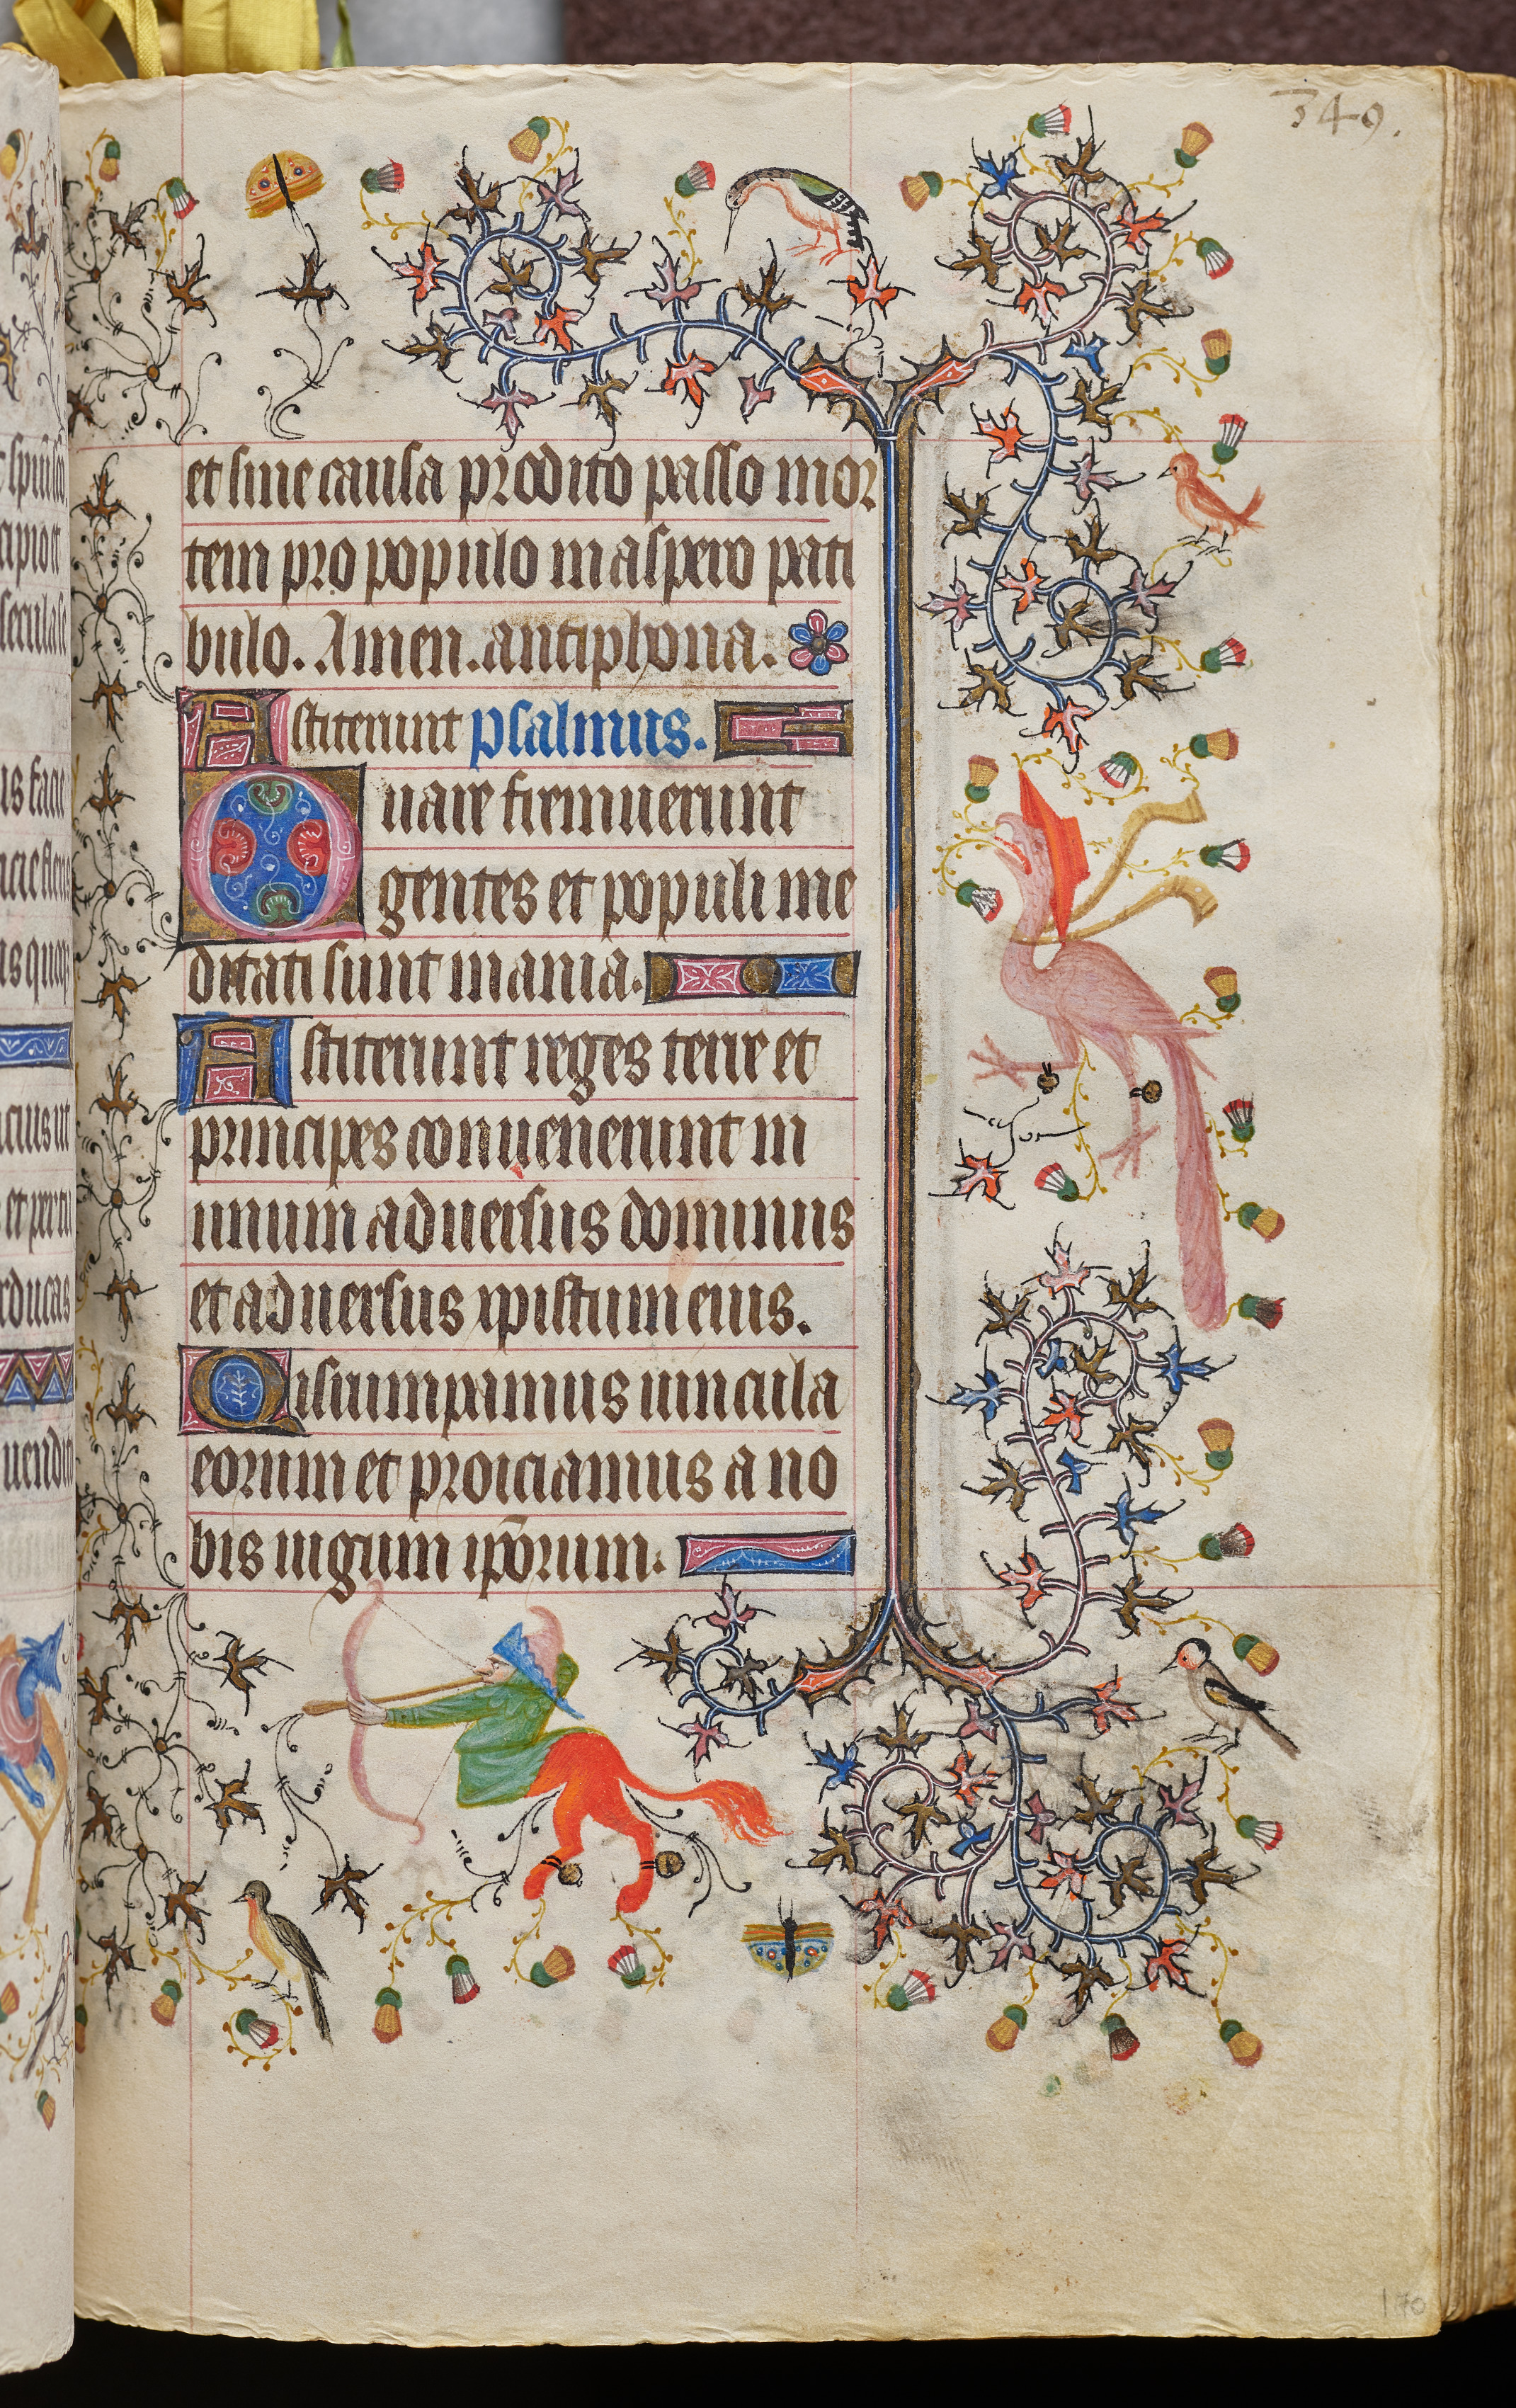 349.
et sine causa prodito passo mor
tem pro populo in aspero pati
bulo. Amen. antiphona.
Astiterunt psalmus.
Quare fremuerunt
gentes et populi me
ditati sunt inania.
Astiterunt reges terre et
principes conuenerunt in
unum aduersus dominus
et aduersus xpistum eius.
Disrumpamus uincula
eorum et proiciamus a no
bis iugum ip̄orum.
170